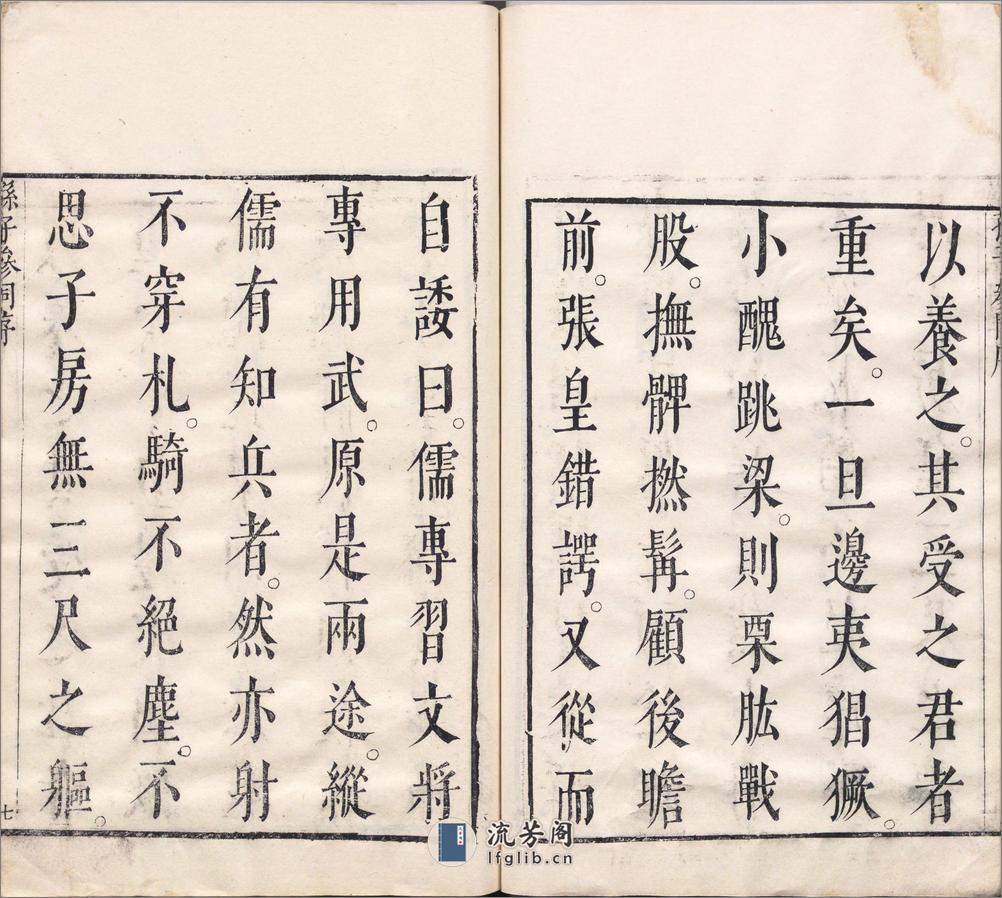 以養之。其受之君者
重矣。一旦邊夷猖獗。
小醜跳梁。則栗肱戰
股。撫髀撚髯。顧後瞻
前。張皇錯諤。又從而
自諉曰。儒專習文將
專用武。原是兩途。縱
儒有知兵者。然亦射
不穿札。騎不絕塵。不
思子房無三尺之軀。
孫子參同序
七
流芳阁
lfglib.cn